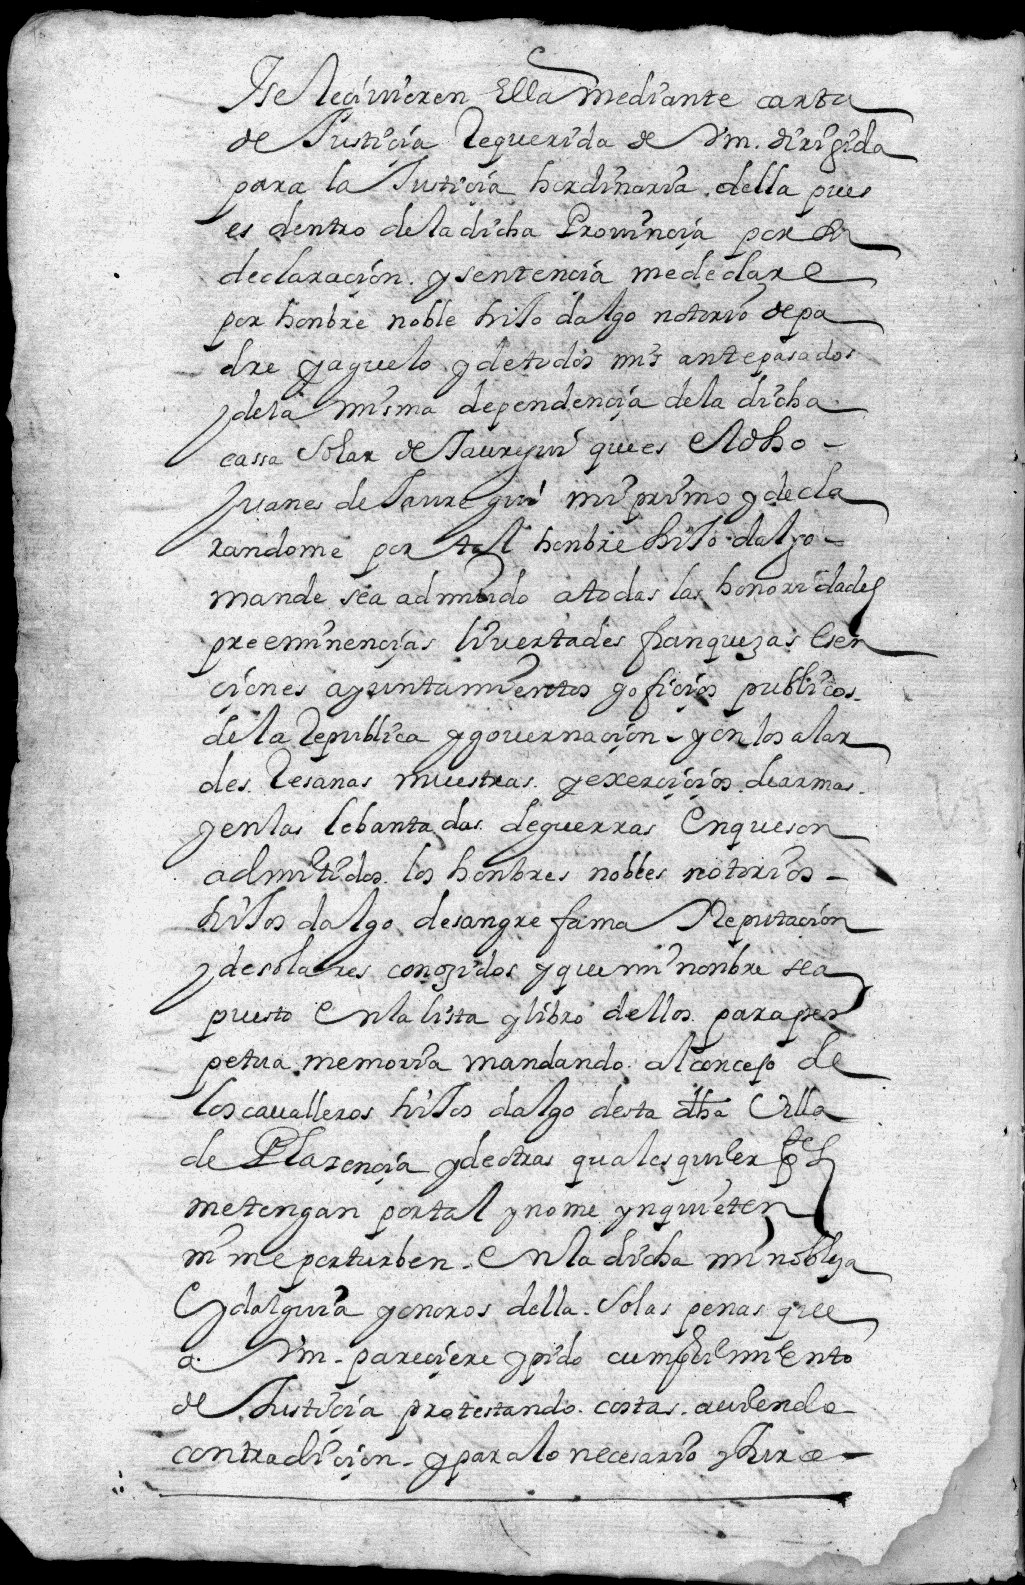 Y se Recivieren Ella mediante carta
de Justicia Requerida de Vm. dirigida
para la Justicia hordinaria della pues
es dentro de la dicha Provincia por su
declaracion. y sentencia me declare
por honbre noble hijo dalgo notorio de pa
dre y aguelo y de todos mis antepasados
y de la misma dependencia de la dicha
cassa Solar de Jauregui que es el dho
Juanes de Jauregui mi primo y decla
randome por tal honbre hijo dalgo
mande sea admitido a todas las honoridades
preeminencias livertades franquezas Esen
ciones ayuntamientos y oficios publicos
de la Republica y governacion y en los alar
des Resenas muestras y exercicios de armas
y en las lebantadas de guerras En que son
admitidos los honbres nobles notorios
hijos dalgo de sangre fama Reputacion
y de solares conozidos y que mi nonbre sea
puesto En la lista y libro dellos para per
petua memoria mandando al concejo de
los cavalleros hijos dalgo desta dha Villa
de Plazencia y de otras qualesquier
me tengan por tal y no me ynquieten
ni me perturben En la dicha mi nobleza
E ydalguia y onores della. So las penas que
a Vm. pareciere y pido cumplimiento
de Justicia protestando costas aviendo
contradicion y para lo necesario Juro